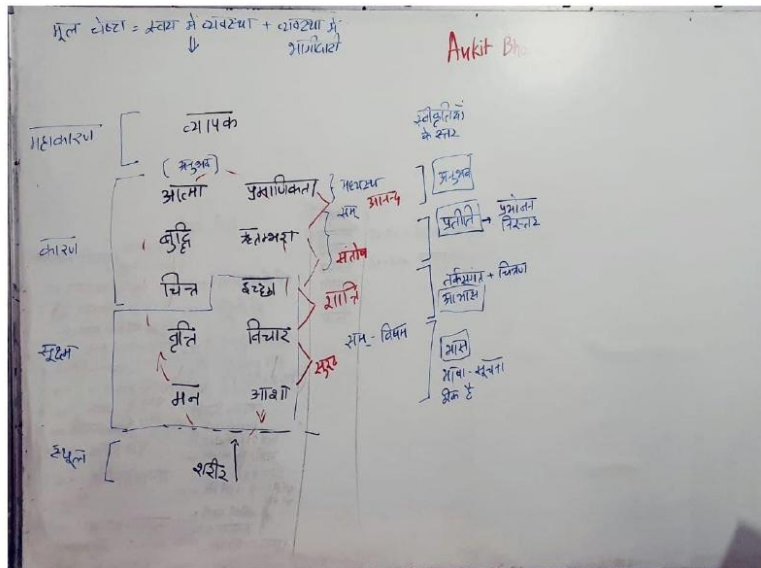 मूल चेष्टा = स्वयं में व्यवस्था + व्यवस्था में
भागीदारी
Ankit
महाकारण
व्यापक
स्वीकृतियों
के स्तर
(अनुभव)
आत्मा प्रमाणिकता मध्यस्थ अनुभव
सम आनन्द
कारण
बुद्धि ऋतम्भरा संतोष प्रतीति →
चित्त इच्छा शान्ति तर्कसंगत + चित्रण
आभास
सूक्ष्म
वृत्ति विचार सम - विषम भास
सुख
भाषा - सूचना
ठीक है
मन आशा
स्थूल
शरीर